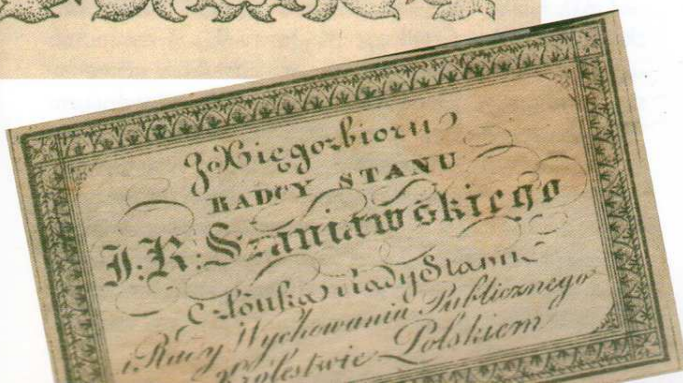 Z Xięgozbioru
RADCY STANU
J: K: Szaniawskiego
Członka Rady Stanu
i Rady Wychowania Publicznego
Królestwie Polskiem